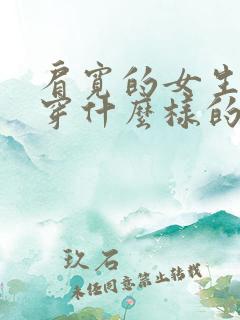 肩宽的女生
穿什麼樣的
玖石
未经同意禁止转载